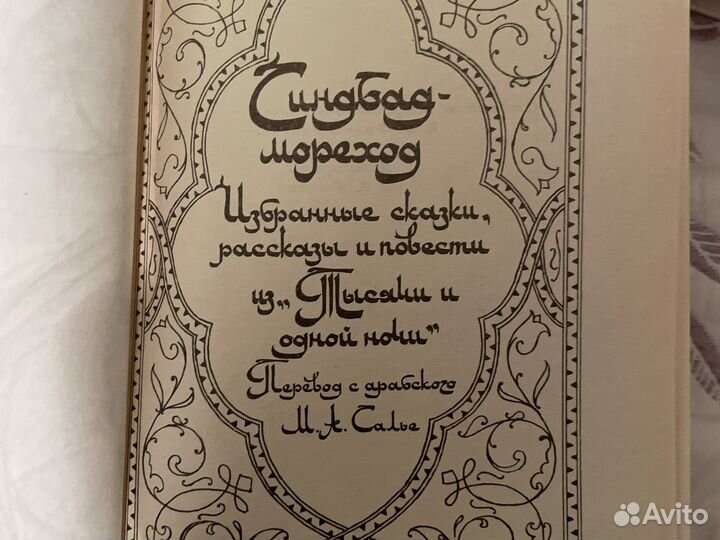 Синдбад-
мореход
Избранные сказки,
рассказы и повести
из „Тысячи и
одной ночи“
Перевод с арабского
М. А. Салье
Avito